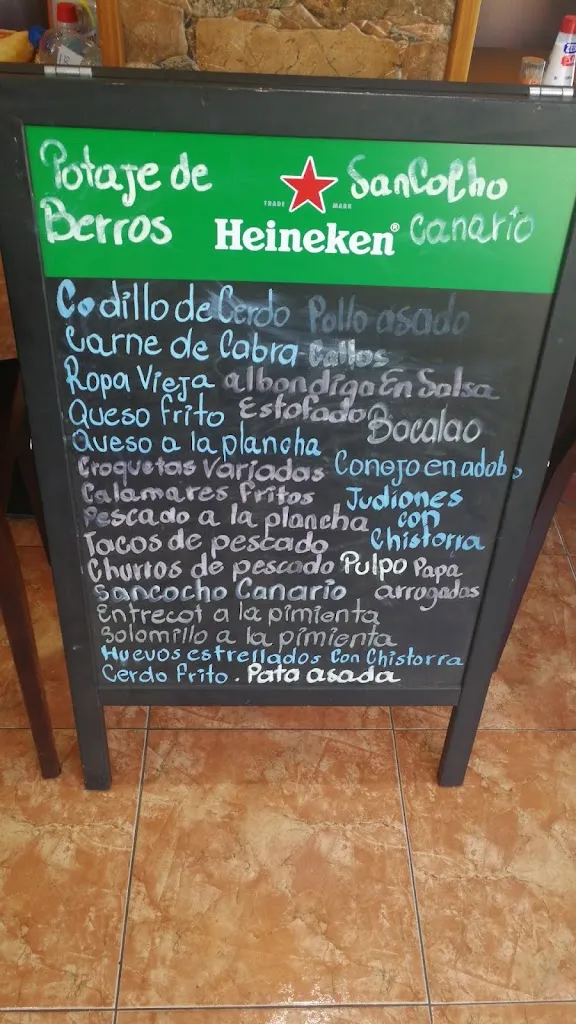 Potaje de
Berros
TRADE MARK
Heineken®
SanColho
canario
Codillo de Cerdo Pollo asado
Carne de Cabra Callos
Ropa Vieja albondiga En Salsa
Queso frito Estofado Bocalao
Queso a la plancha
Croquetas Variadas Conejo en adobo
Calamares Fritos Judiones
Pescado a la plancha con
Tacos de pescado Chistorra
Churros de pescado Pulpo Papa
Sancocho Canario arrogadas
Entrecot a la pimienta
Solomillo a la pimienta
Huevos estrellados Con Chistorra
Cerdo Frito. Pata asada